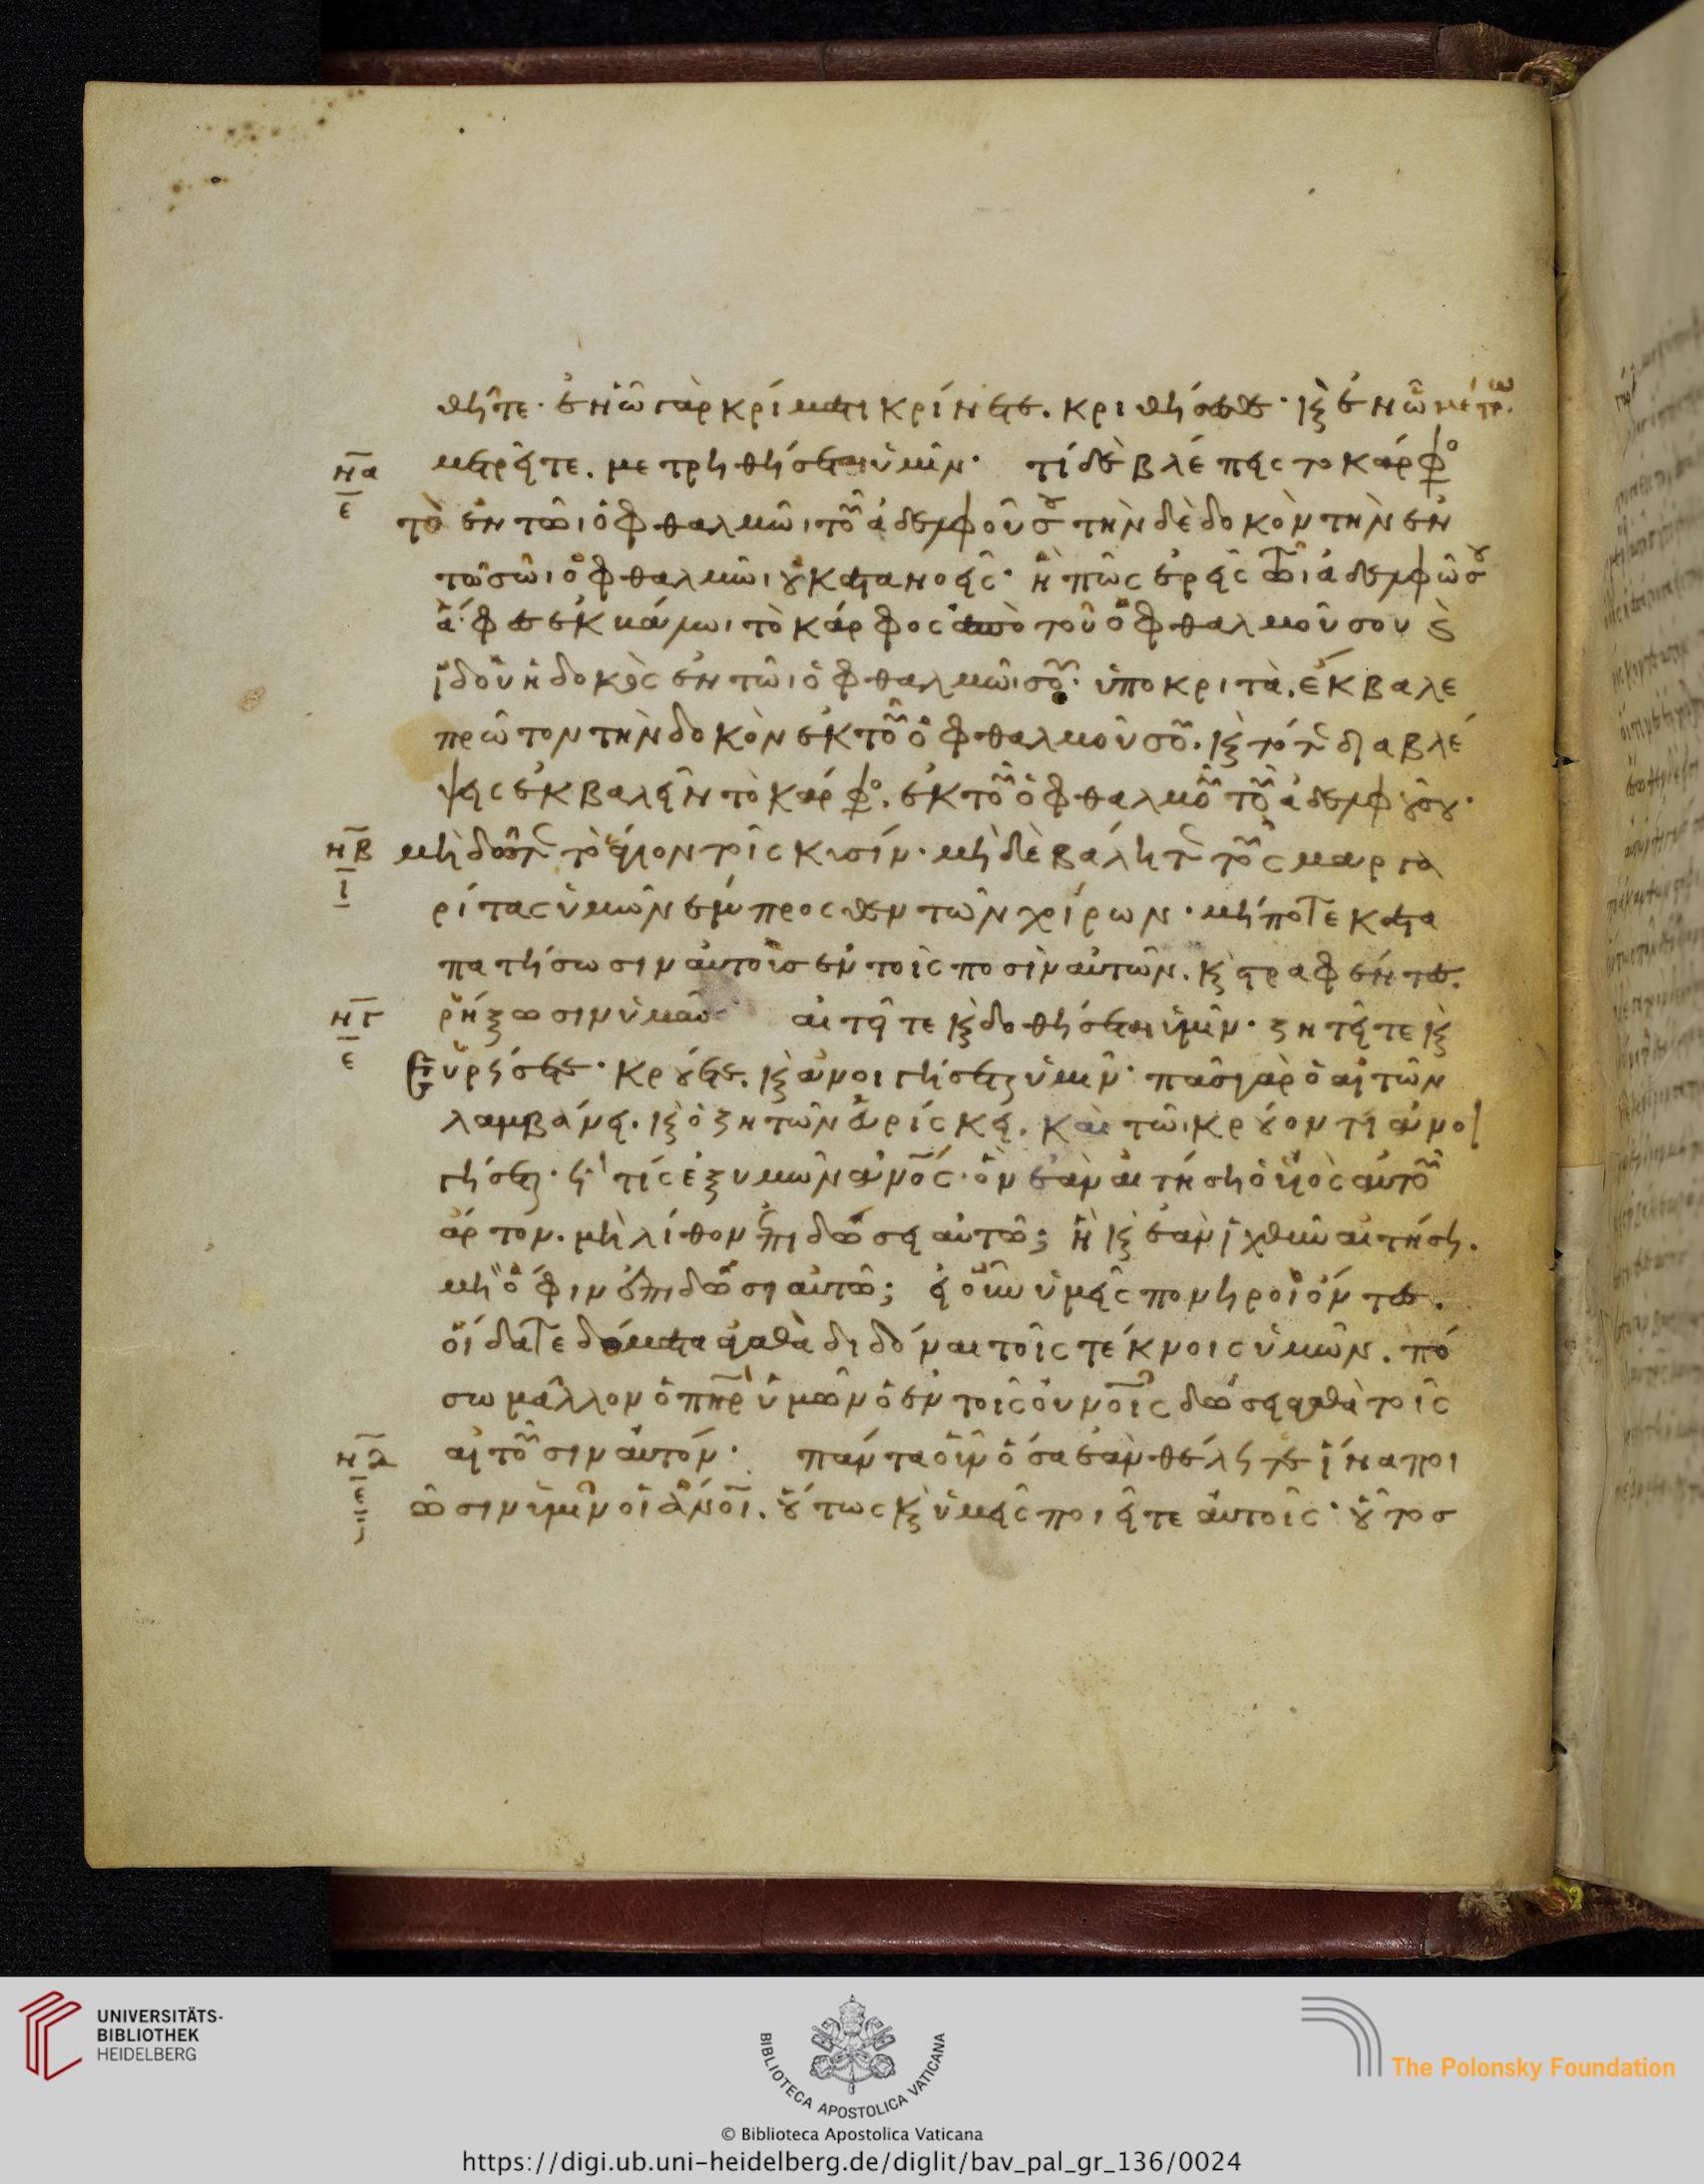 θῆτε· ἐν ὧ γὰρ κρίματι κρίνετε. κριθήσεσθε· κ(αὶ) ἐν ὧ μέτρω
να μετρεῖτε. μετρηθήσεται ὑμῖν· τί δὲ βλέπεις το κάρφο
ε τὸ ἐν τῶι ὀφθαλμῶι τοῦ ἀδελφοῦ σου τὴν δὲ δοκὸν τὴν ἐν
τῶ σῶι ὀφθαλμῶι οὐ κατανοεῖς· ἢ πῶς ἐρεῖς τῶι ἀδελφῶ σου
ἄφες ἐκβάλω τὸ κάρφος ἀπὸ τοῦ ὀφθαλμοῦ σου κ(αὶ)
ἰδοὺ ἡ δοκὸς ἐν τῶι ὀφθαλμῶι σοῦ· ὑποκριτὰ. ἔκβαλε
πρῶτον τὴν δοκὸν ἐκ τοῦ ὀφθαλμοῦ σοῦ. κ(αὶ) τότε διαβλέ
ψεις ἐκβαλεῖν τὸ κάρφο. ἐκ τοῦ ὀφθαλμοῦ τοῦ ἀδελφοῦ σου·
νβ μὴ δῶτε τὸ ἅγιον τοῖς κυσίν· μὴ δὲ βάλητε τοὺς μαργα
ι ρίτας ὑμῶν ἔμπροσθεν τῶν χοίρων· μήποτε κατα
πατήσωσιν αὐτοὺσ ἐν τοῖς ποσὶν αὐτῶν. κ(αὶ) στραφέντες.
νγ ῥήξωσιν ὑμᾶσ· αἰτεῖτε κ(αὶ) δοθήσεται ὑμῖν· ζητεῖτε κ(αὶ)
ε εὑρήσετε· κρούετε. κ(αὶ) ἀνοιγήσεται ὑμῖν· πᾶσ γὰρ ὁ αἰτῶν
λαμβάνει. κ(αὶ) ὁ ζητῶν εὑρίσκει. καὶ τῶι κρούοντι ἀνοι
γήσεται· ἢ τίς ἐξ υμῶν ἀν(θρωπ)ος· ὃν ἐὰν αἰτήση ὁ υἱὸς αὐτοῦ
ἄρτον. μὴ λίθον ἐπιδώσει αὐτῶ; ἢ κ(αὶ) ἐὰν ἰχθὺν αἰτήση.
μὴ ὄφιν ἐπιδώσι αὐτῶ; εἰ οὖν ὑμεῖς πονηροὶ ὄντες.
οἴδατε δόματα ἀγαθὰ διδόναι τοῖς τέκνοις ὑμῶν. πό
σω μᾶλλον ὁ π(ατ)ηρ ὑμῶν ὁ ἐν τοῖς οὐνοῖς δώσει ἀγαθὰ τοῖς
νδ αἰτοῦσιν αὐτόν· πάντα οὖν ὅσα ἐὰν θέλητε ἵνα ποι
ε ῶσιν ὑμῖν οἱ ἀν(θρωπ)οι. οὕτως κ(αὶ) ὑμεῖς ποιεῖτε αὐτοῖς· οὗτοσ
UNIVERSITÄTS-
BIBLIOTHEK
HEIDELBERG
BIBLIOTECA APOSTOLICA VATICANA
The Polonsky Foundation
© Biblioteca Apostolica Vaticana
https://digi.ub.uni-heidelberg.de/diglit/bav_pal_gr_136/0024